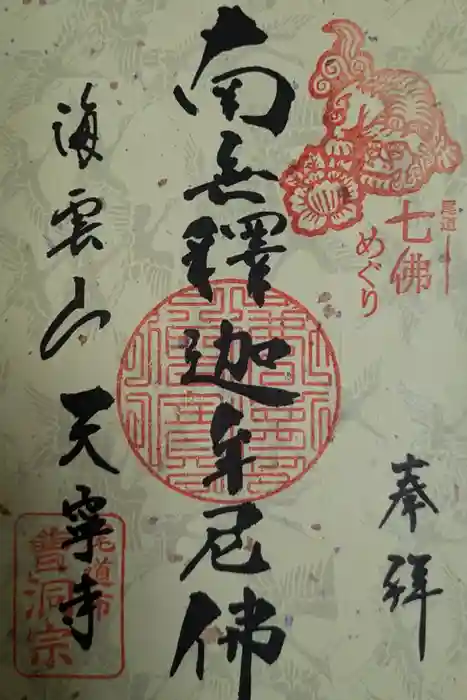 尾道
七佛
めぐり
奉拝
南無釋迦牟尼佛
海雲山 天寧寺
尾道市
曹洞宗